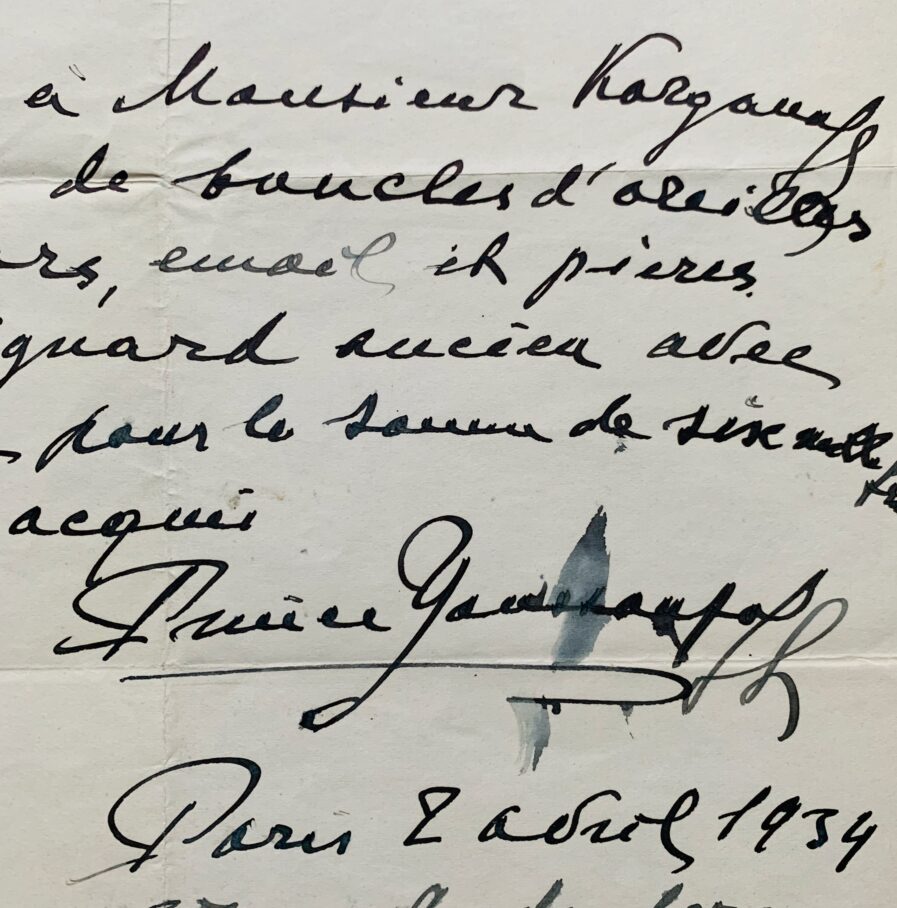 à Monsieur Korganoff
de boucles d'oreilles
rs, email et pieres
ignard ancien avec
pour la somme de six mille
acquis
Prince Youssoupoff
Paris 2 avril 1934